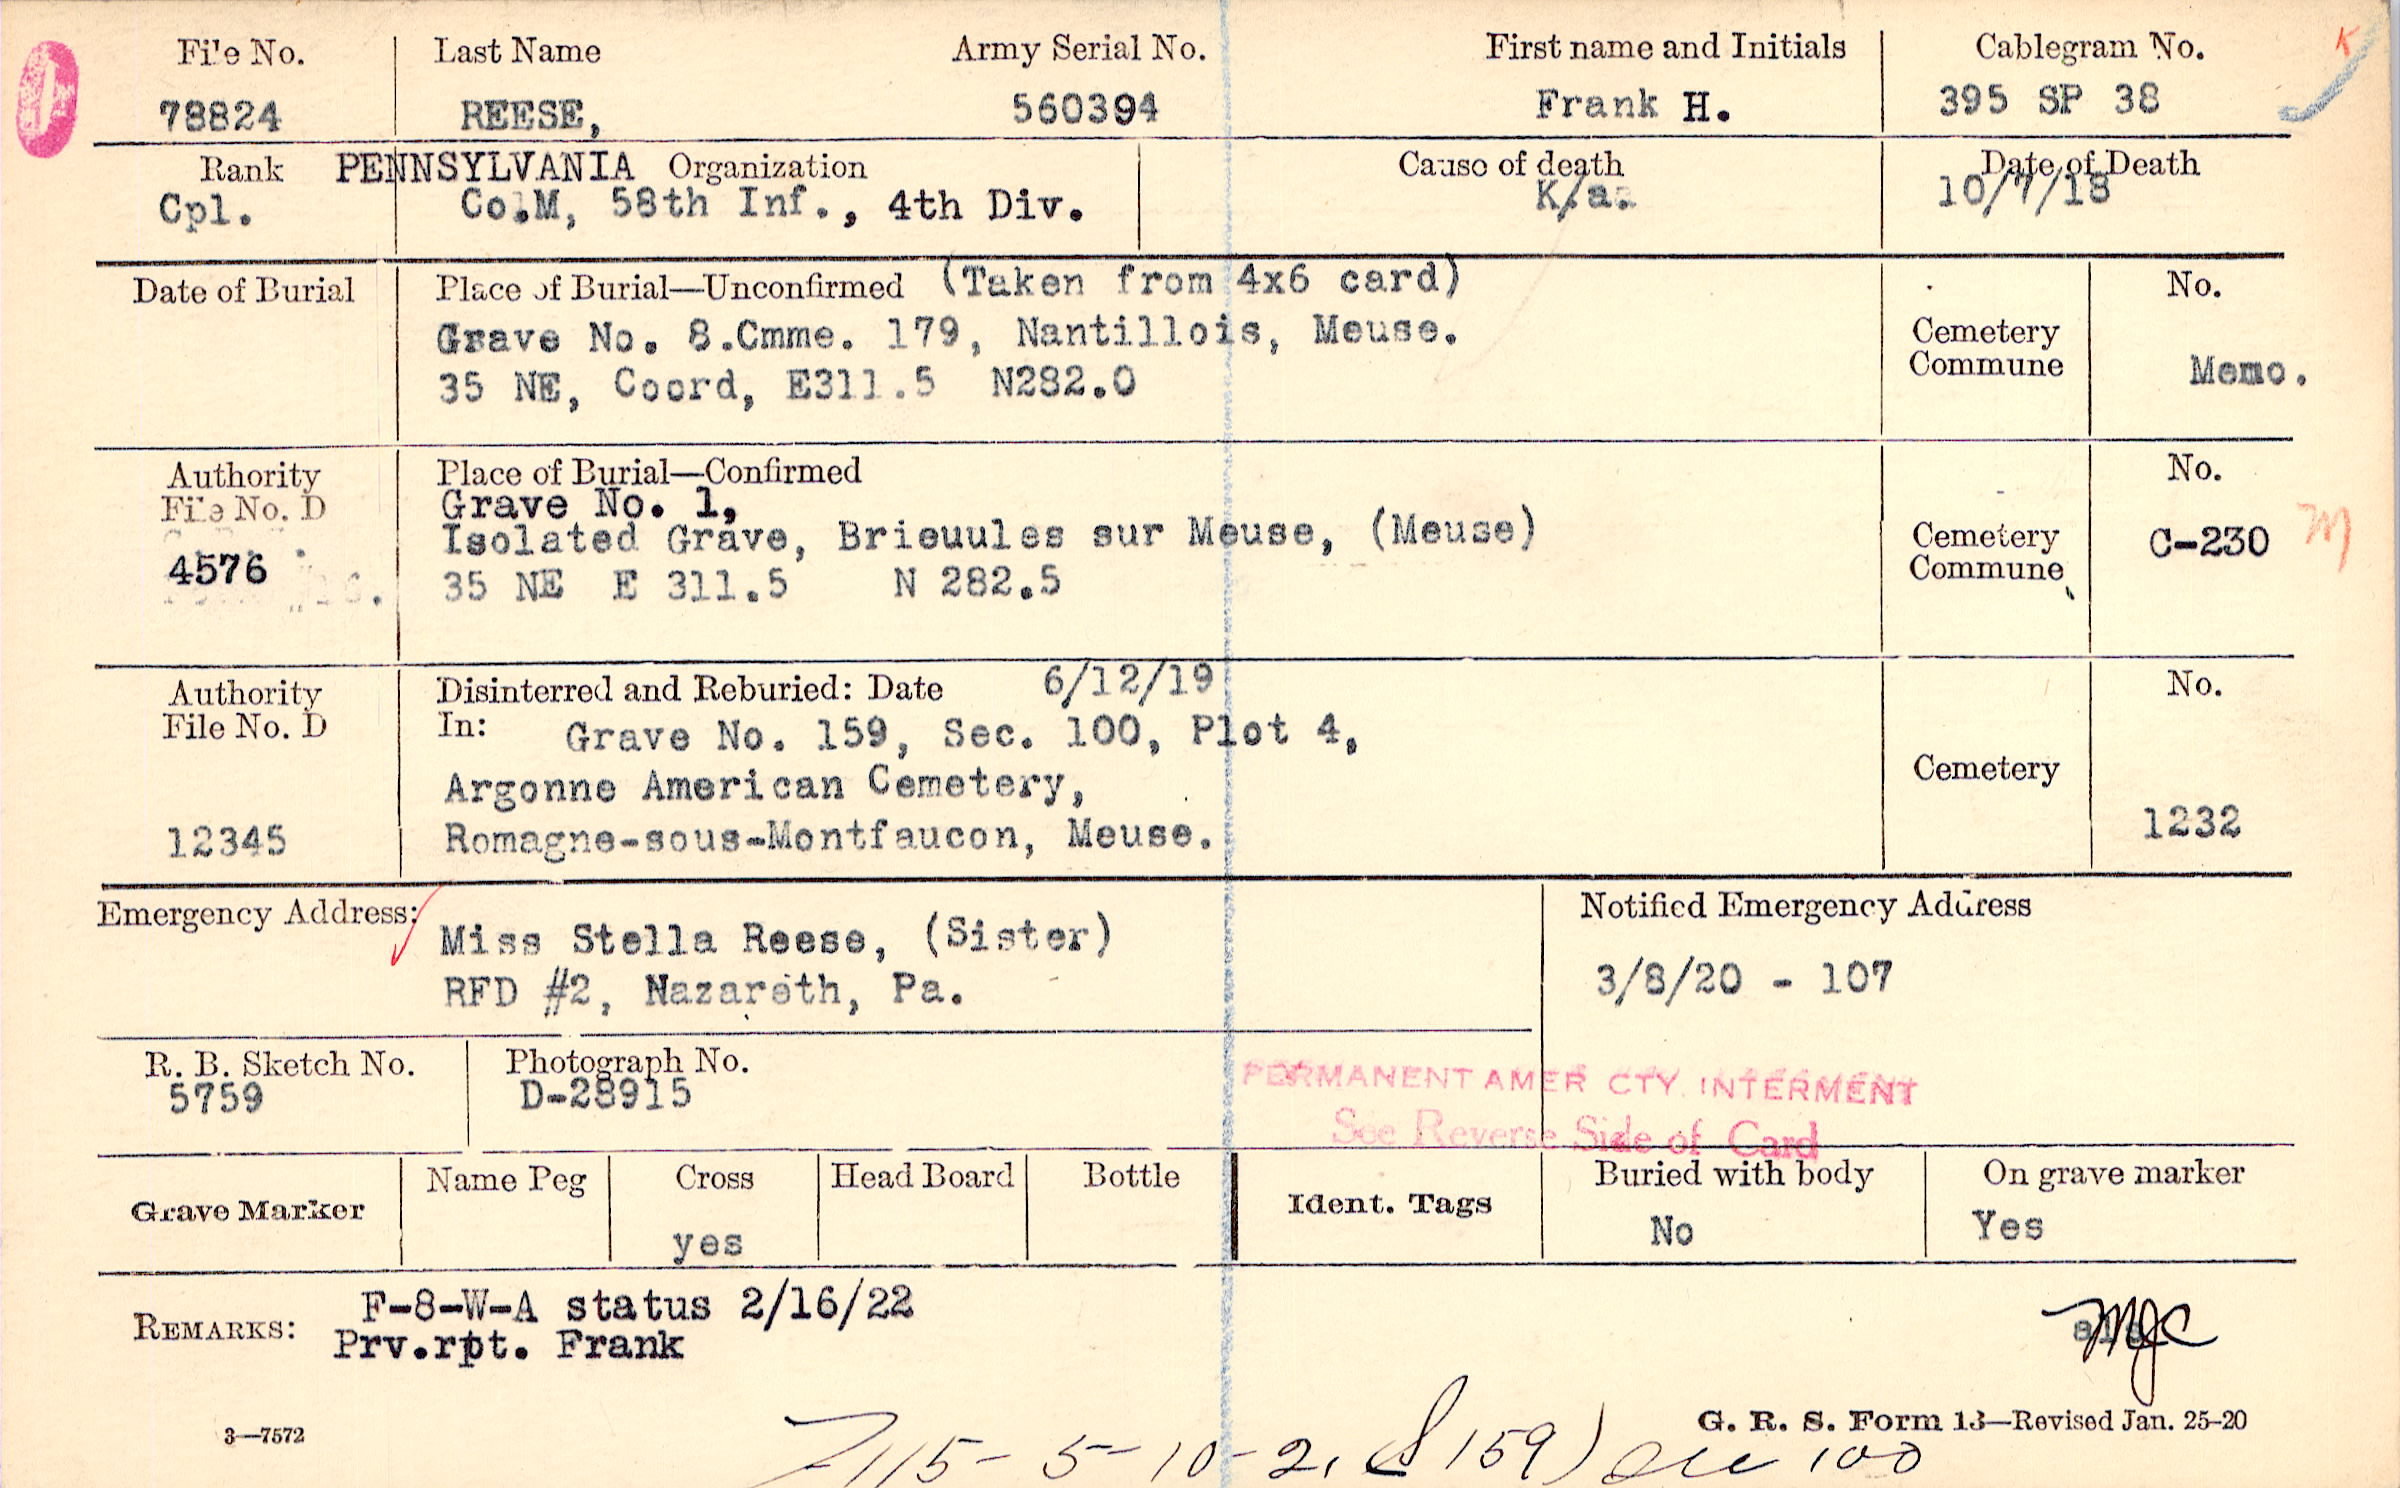 File No. Last Name Army Serial No. First name and Initials Cablegram No. K
78824 REESE, 560394 Frank H. 395 SP 38
Rank PENNSYLVANIA Organization Cause of death Date of Death
Cpl. Co.M, 58th Inf., 4th Div. K/a. 10/7/18
Date of Burial Place of Burial—Unconfirmed (Taken from 4x6 card) No.
Grave No. 8.Cmme. 179, Nantillois, Meuse. Cemetery
35 NE, Coord, E311.5 N282.0 Commune Memo.
Authority Place of Burial—Confirmed No.
File No. D Grave No. 1,
Isolated Grave, Brieuules sur Meuse, (Meuse) Cemetery C-230 M
4576 35 NE E 311.5 N 282.5 Commune
Authority Disinterred and Reburied: Date 6/12/19 No.
File No. D In: Grave No. 159, Sec. 100, Plot 4,
Argonne American Cemetery, Cemetery
12345 Romagne-sous-Montfaucon, Meuse. 1232
Emergency Address: Notified Emergency Address
Miss Stella Reese, (Sister)
RFD #2, Nazareth, Pa. 3/8/20 - 107
R. B. Sketch No. Photograph No.
5759 D-28915
PERMANENT AMER CTY. INTERMENT
See Reverse Side of Card
Grave Marker Name Peg Cross Head Board Bottle Ident. Tags Buried with body On grave marker
yes No Yes
REMARKS: F-8-W-A status 2/16/22
Prv.rpt. Frank MJC
3—7572 G. R. S. Form 13—Revised Jan. 25-20
115- 5-10-2, 159) 100